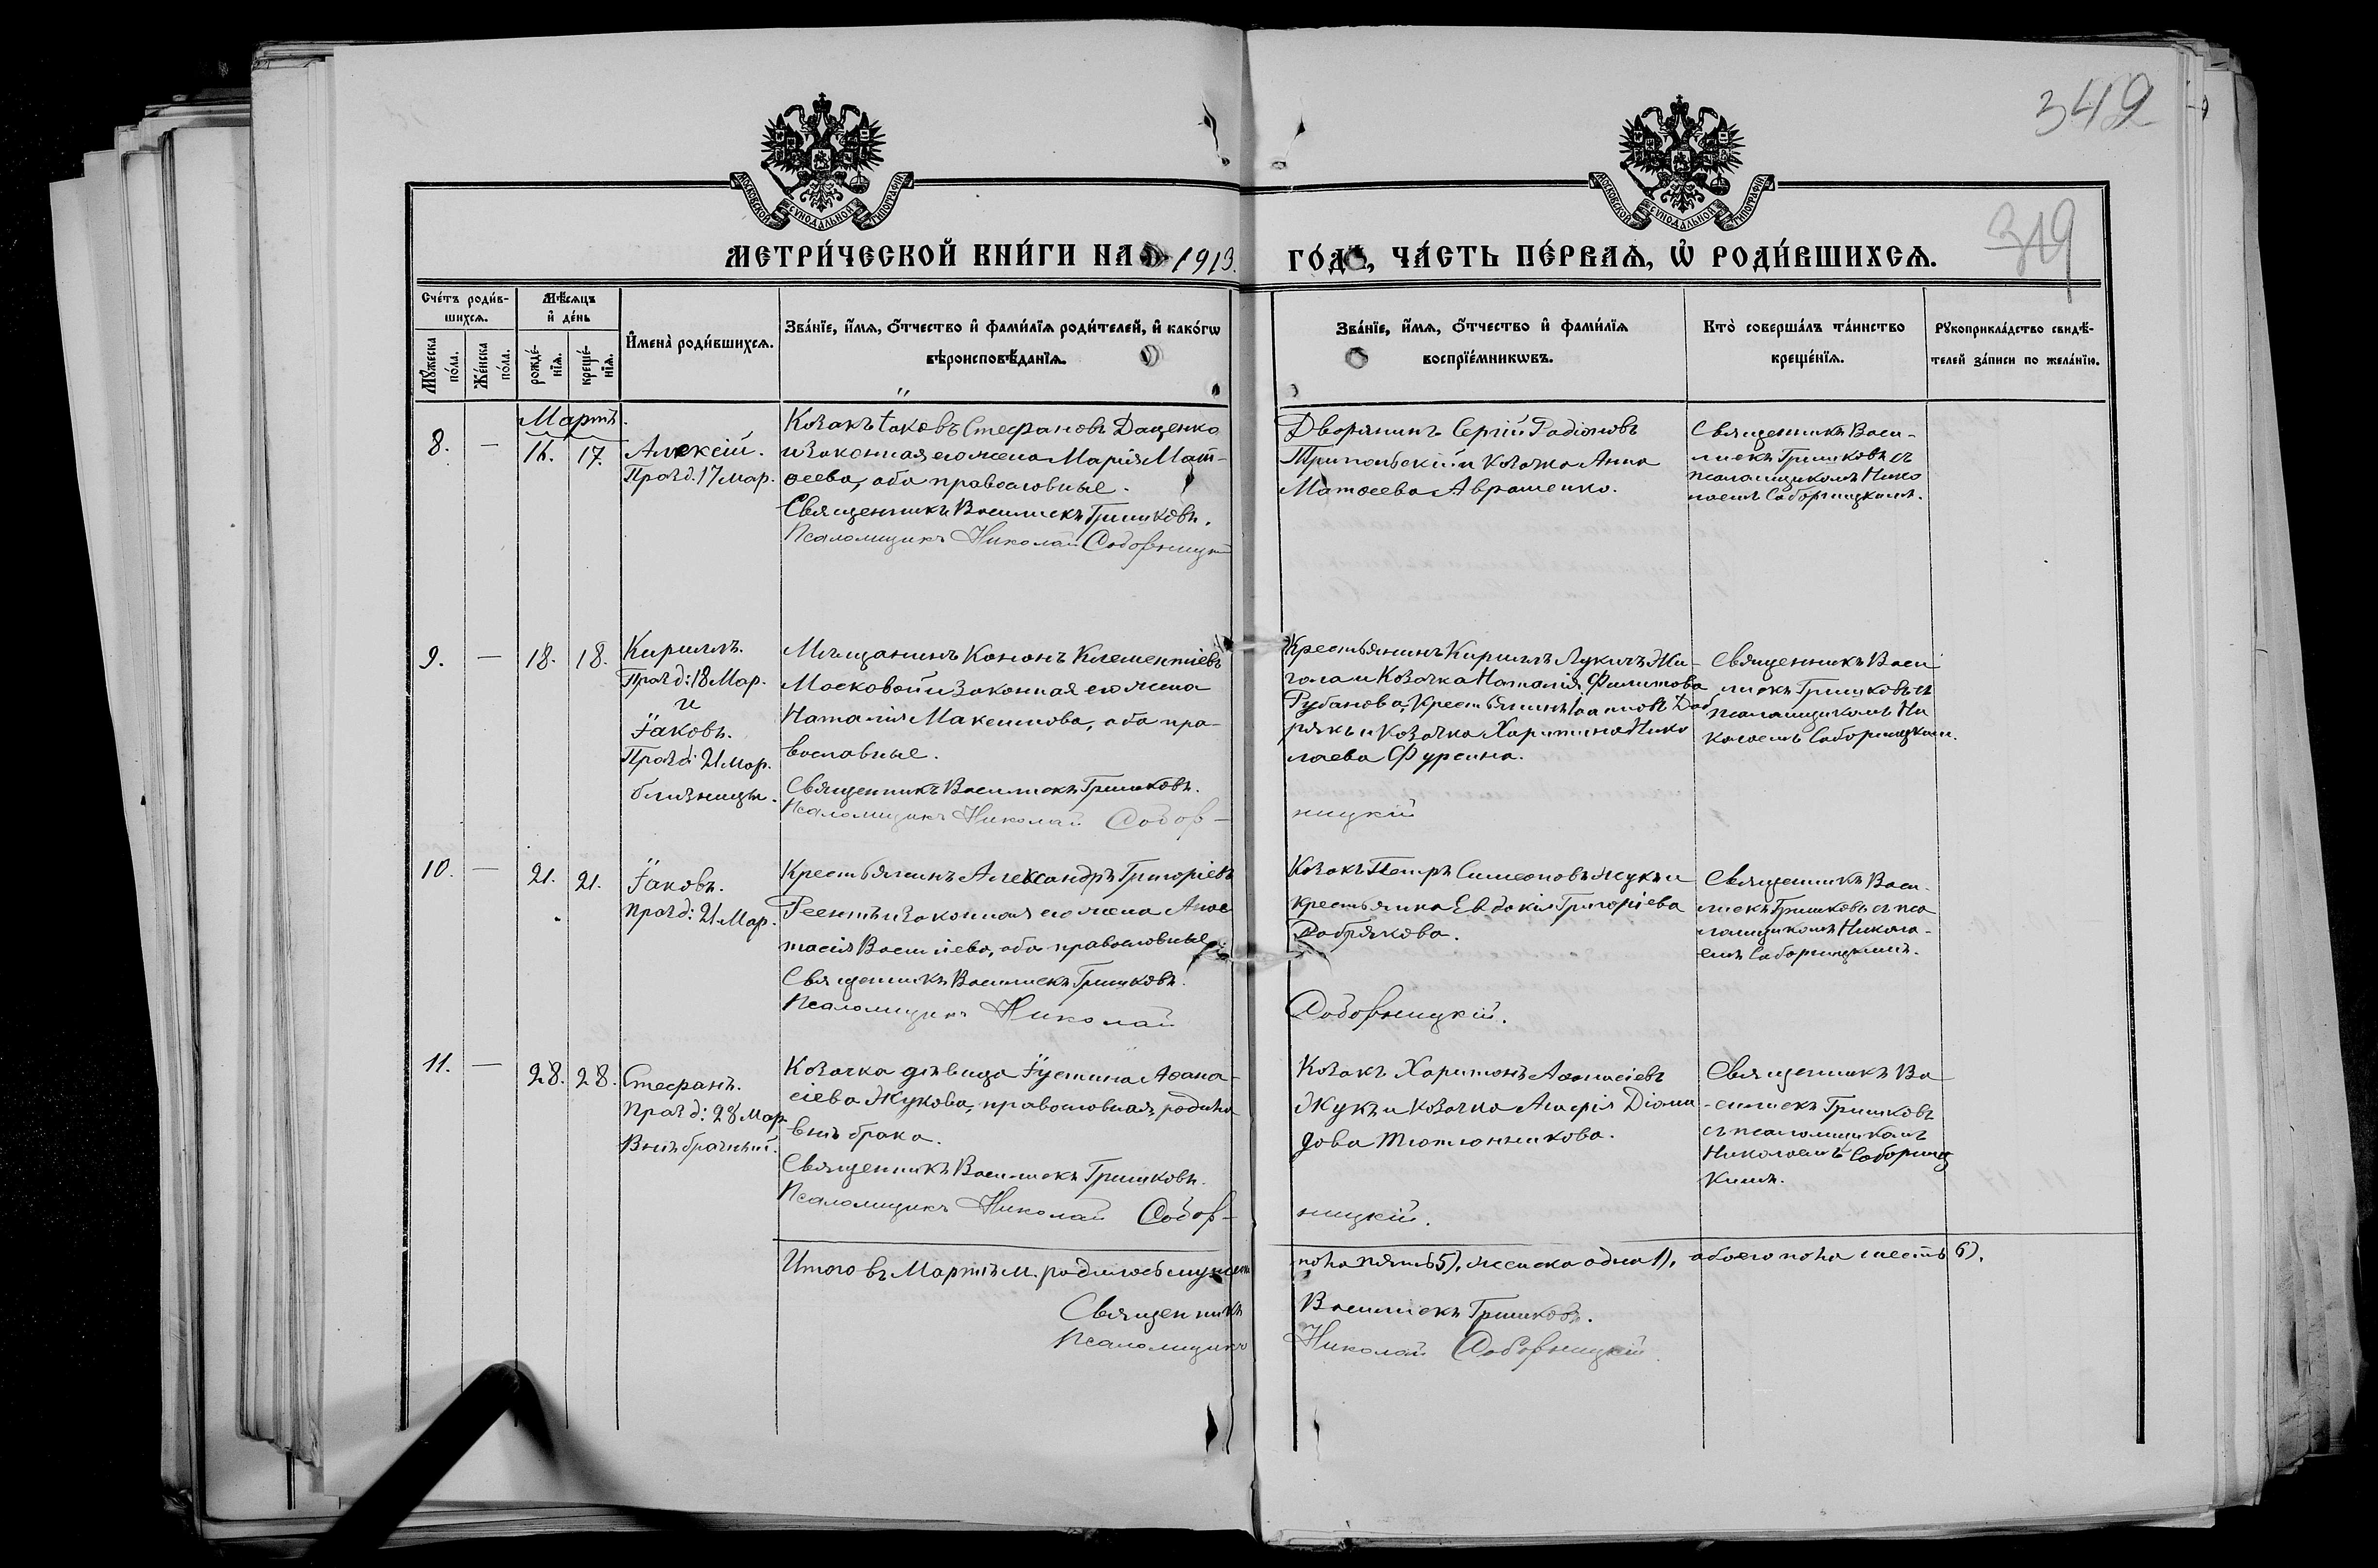 342
319
МОСКОВСКОЙ СѴНОДАЛЬНОЙ ТИПОГРАФІИ
МОСКОВСКОЙ СѴНОДАЛЬНОЙ ТИПОГРАФІИ
МЕТРИ́ЧЕСКОЙ КНИ́ГИ НА 1913.
ГО́ДЪ, ЧА́СТЬ ПЕ́РВАѦ, Ѡ҆ РОДИ́ВШИХСѦ.
Сче́тъ роди́в-
шихсѧ.
Мѣ́сѧцъ
и҆ де́нь
И҆мена̀ роди́вшихсѧ.
Зва́нїе, и҆́мѧ, ѻ҆́тчество и҆ фами́лїѧ роди́телей, и҆ како́гѡ
вѣроисповѣ́данїѧ.
Мꙋ́жеска
по́ла.
Же́нска
по́ла.
рожде́-
нїѧ.
креще́-
нїѧ.
Зва́нїе, и҆́мѧ, ѻ҆́тчество и҆ фами́лїѧ
воспрїе́мникѡвъ.
Кто̀ соверша́лъ та́инство
креще́нїѧ.
Рꙋкоприкла́дство свидѣ́-
телей за́писи по жела́нїю.
Мартъ.
8. — 16. 17.
Алексій.
Празд. 17 Мар.
Козакъ Іаковъ Стефановъ Даценко
и законная его жена Марія Мат-
ѳеева, оба православные.
Священникъ Василискъ Гришковъ.
Псаломщикъ Николай Соборницкій
Дворянинъ Сергій Радіоновъ
Трипольскій и козачка Анна
Матѳеева Авраменко.
Священникъ Васи-
лискъ Гришковъ съ
псаломщикомъ Нико
лаемъ Соборницкимъ.
9. — 18. 18.
Кириллъ.
Празд: 18 Мар.
и
Іаковъ.
Празд: 21 Мар.
близнецы.
Мѣщанинъ Кононъ Клементіевъ
Московой и законная его жена
Наталія Максимова, оба пра-
вославные.
Священникъ Василискъ Гришковъ.
Псаломщикъ Николай Собор-
ницкій
Крестьянинъ Кириллъ Лукичъ Жи-
гала и Козачка Наталія Филипова
Рубанова, Крестьянинъ Іоаннъ Доб
рякъ и козачка Харитина Нико
лаева Фурсина.
Священникъ Васи
лискъ Гришковъ съ
псаломщикомъ Ни
колаемъ Соборницким.
10. — 21. 21.
Іаковъ.
Празд: 21 Мар.
Крестьянинъ Александръ Григоріевъ
Реентъ и законная его жена Анас
тасія Васильева, оба православные.
Священникъ Василискъ Гришковъ.
Псаломщикъ Николай
Соборницкій.
Козакъ Петръ Симеоновъ Жукъ и
крестьянка Евдокія Григоріева
Добрякова.
Священникъ Васи-
лискъ Гришковъ съ пса
ломщикомъ Никола-
емъ Соборницкимъ.
11. — 28. 28.
Стефанъ.
Празд: 28 Мар.
Внѣбрачный.
Козачка дѣвица Іустина Аѳана-
сіева Жукова, православная, родила
внѣ брака.
Священникъ Василискъ Гришковъ.
Псаломщикъ Николай Собор-
ницкій.
Козакъ Харитонъ Аѳанасіевъ
Жукъ и козачка Агафія Діоми
дова Тютюнникова.
Священникъ Ва-
силискъ Гришковъ
съ псаломщикомъ
Николаемъ Соборниц
кимъ.
Итого въ Мартѣ м. родилось мужеск
пола пять 5), женска одна 1), обоего пола шесть 6).
Священникъ Василискъ Гришковъ.
Псаломщикъ Николай Соборницкій.